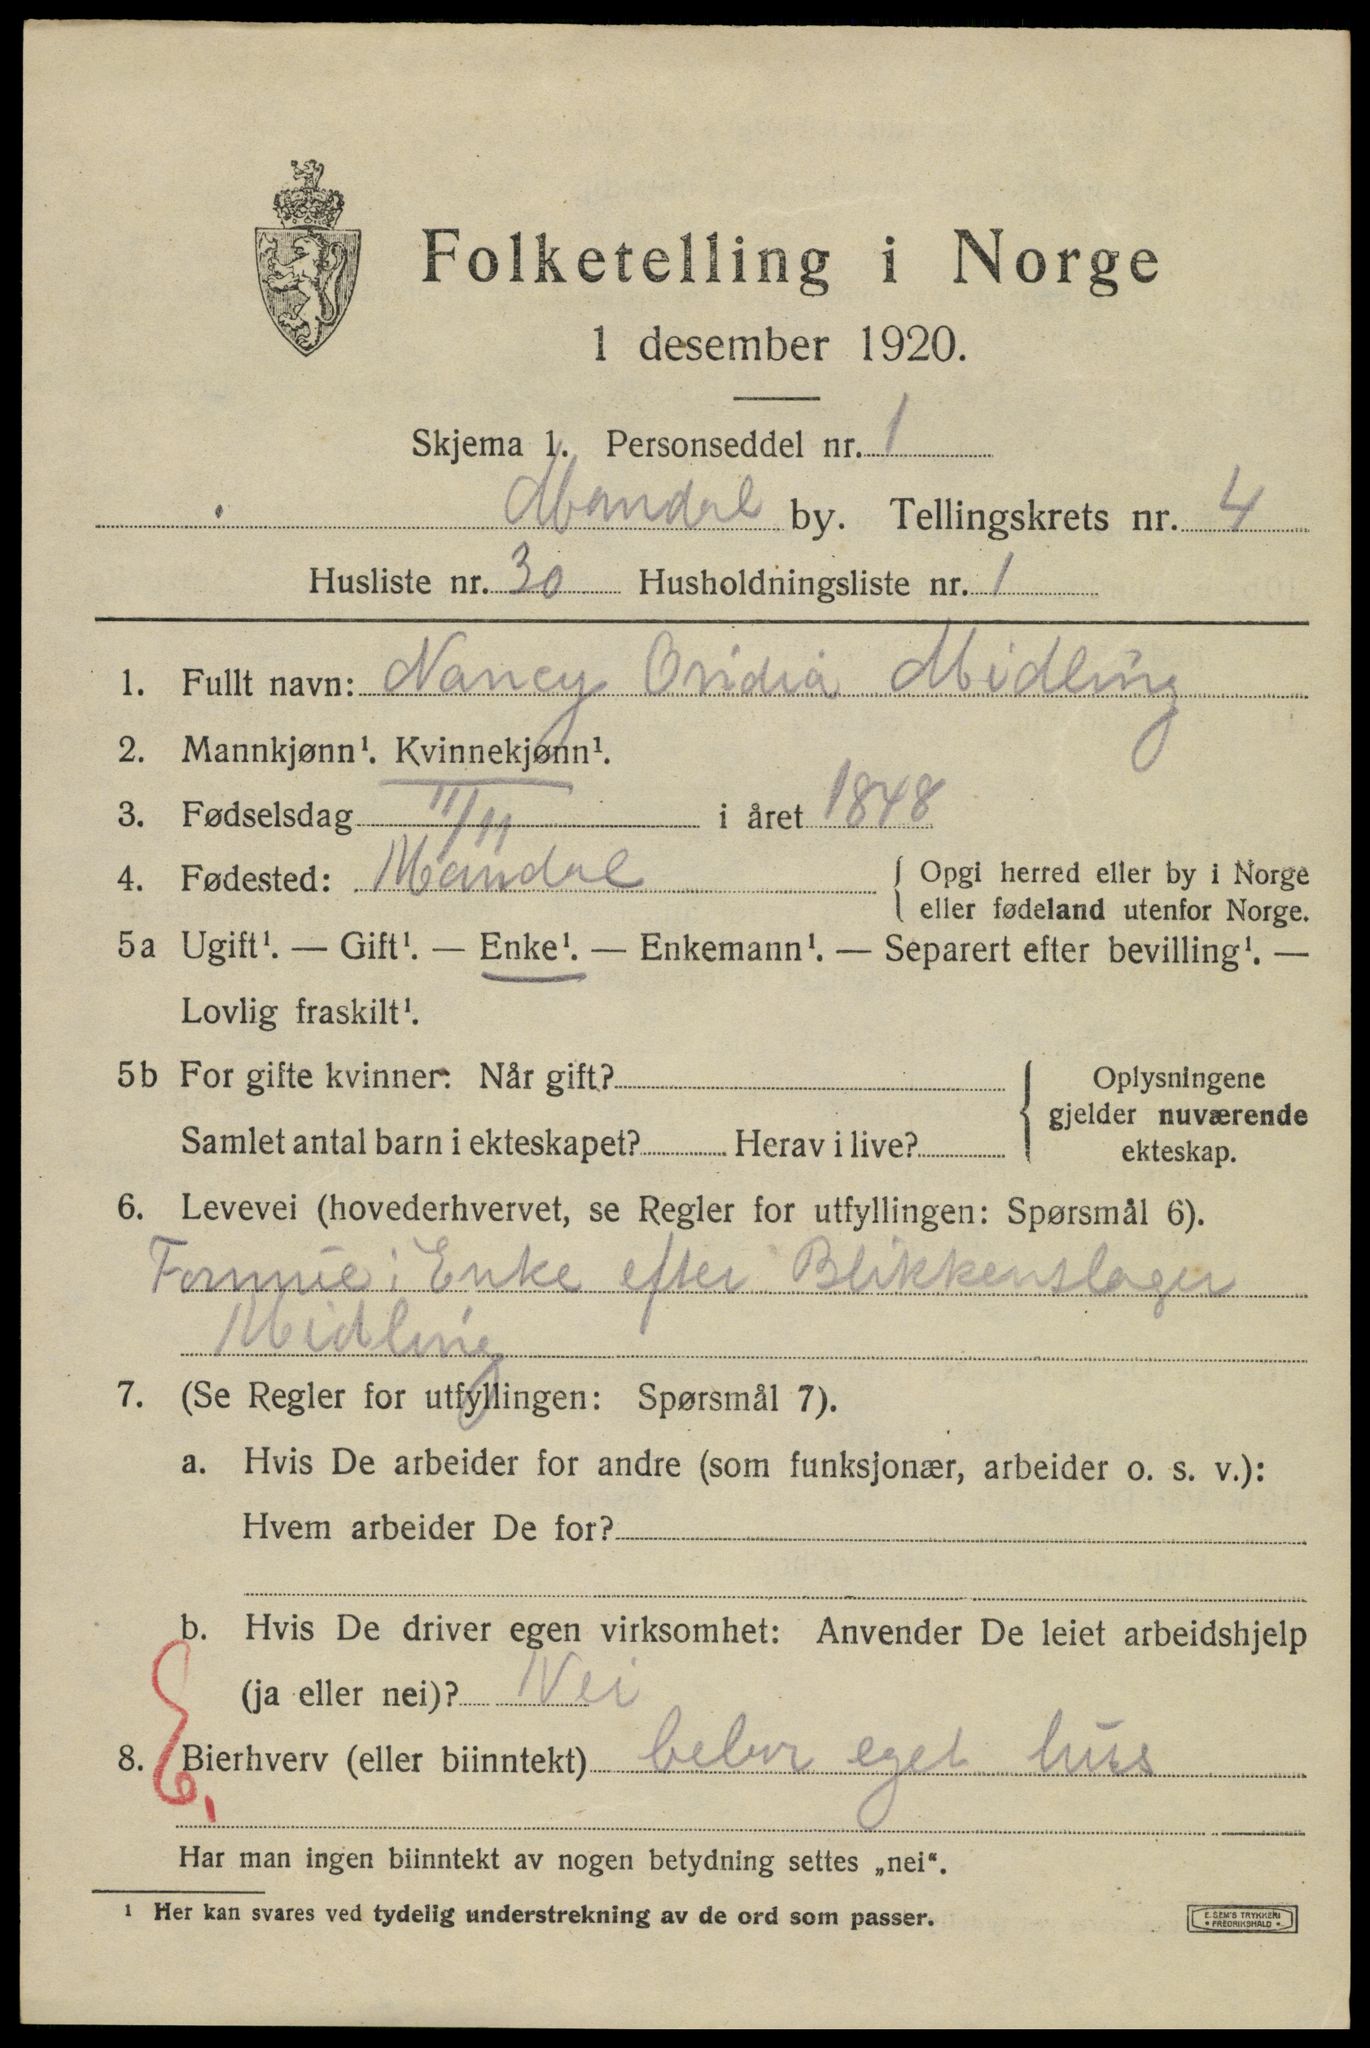 Folketelling i Norge
1 desember 1920.
Skjema 1. Personseddel nr. 1
Mandal by. Tellingskrets nr. 4
Husliste nr. 30 Husholdningsliste nr. 1
1. Fullt navn: Nancy Ovidia Midling
2. Mannkjønn¹. Kvinnekjønn¹.
3. Fødselsdag 11/11 i året 1848
4. Fødested: Mandal { Opgi herred eller by i Norge
eller fødeland utenfor Norge.
5a Ugift¹. — Gift¹. — Enke¹. — Enkemann¹. — Separert efter bevilling¹. —
Lovlig fraskilt¹.
5b For gifte kvinner: Når gift?
Samlet antal barn i ekteskapet? Herav i live?
{ Oplysningene
gjelder nuværende
ekteskap.
6. Levevei (hovederhvervet, se Regler for utfyllingen: Spørsmål 6).
Formue i Enke efter Blikkenslager
Midling
7. (Se Regler for utfyllingen: Spørsmål 7).
a. Hvis De arbeider for andre (som funksjonær, arbeider o. s. v.):
Hvem arbeider De for?
b. Hvis De driver egen virksomhet: Anvender De leiet arbeidshjelp
(ja eller nei)? Nei
8. Bierhverv (eller biinntekt) bebor eget huss
Har man ingen biinntekt av nogen betydning settes „nei“.
¹ Her kan svares ved tydelig understrekning av de ord som passer.
E. SEM'S TRYKKERI
• FREDRIKSHALD •